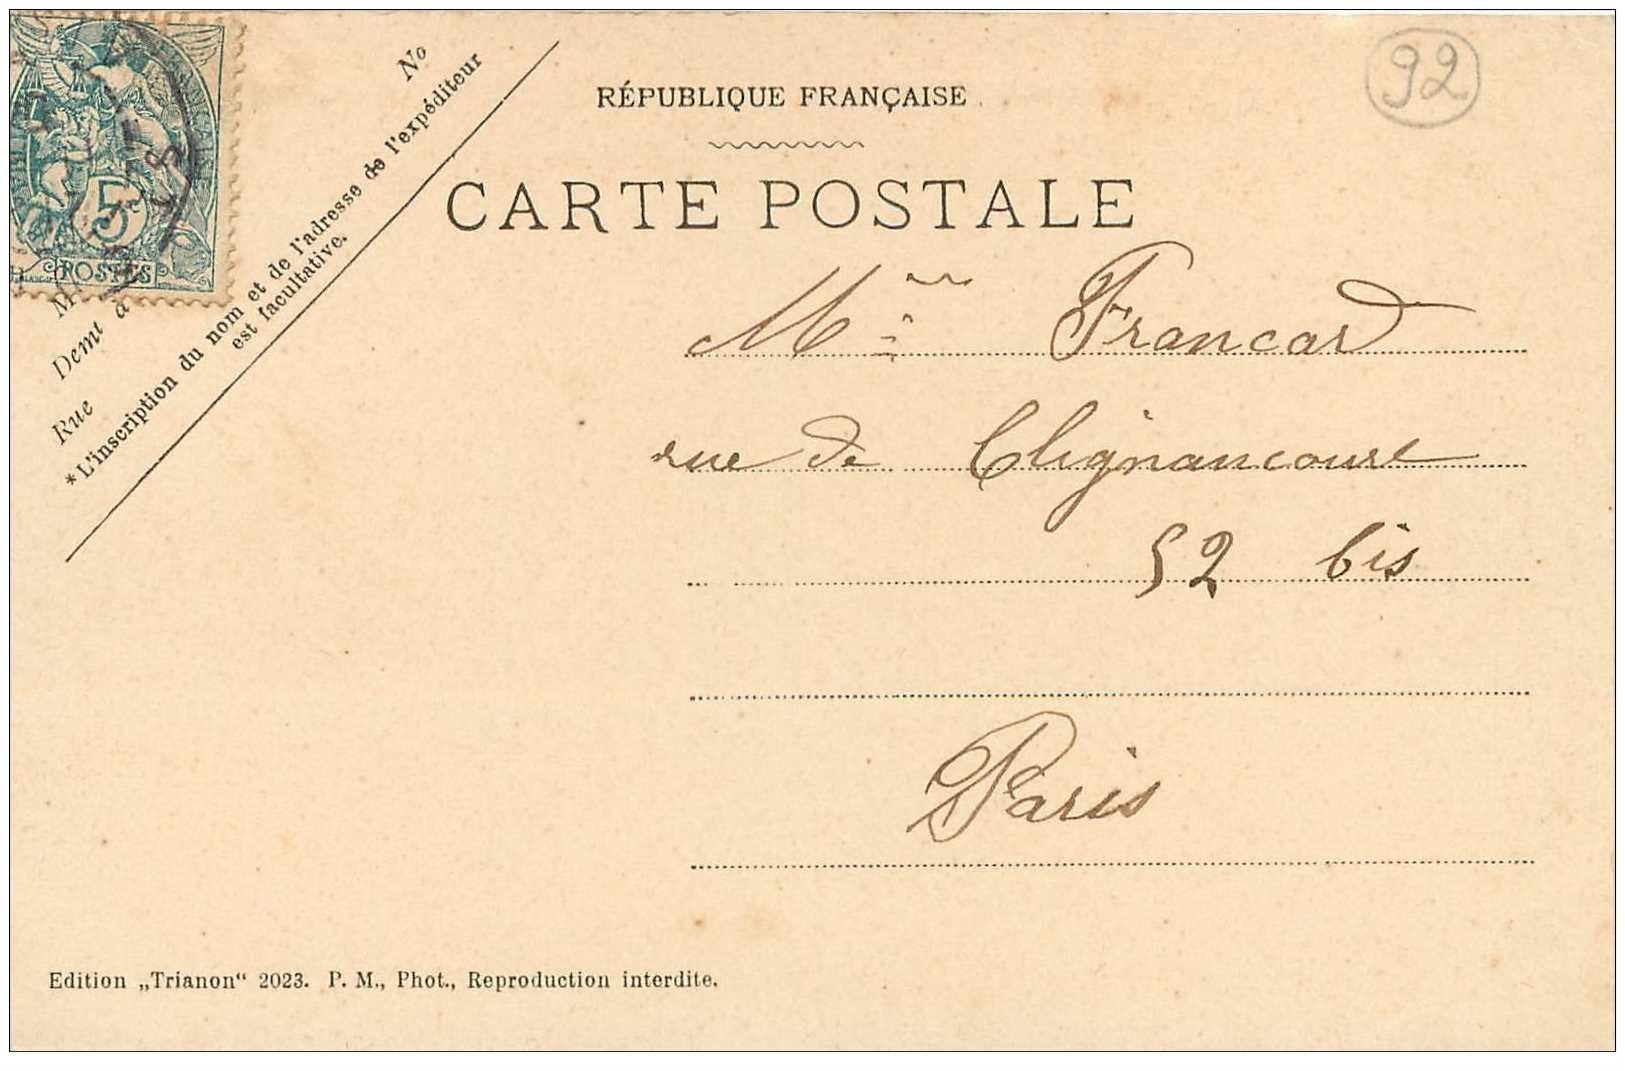 RÉPUBLIQUE FRANÇAISE
92
CARTE POSTALE
No
M
Demt à
Rue
*L'inscription du nom et de l'adresse de l'expéditeur
est facultative.
5c
POSTES
Francar
rue de Clignancourt
52 bis
Paris
Edition „Trianon“ 2023. P. M., Phot., Reproduction interdite.